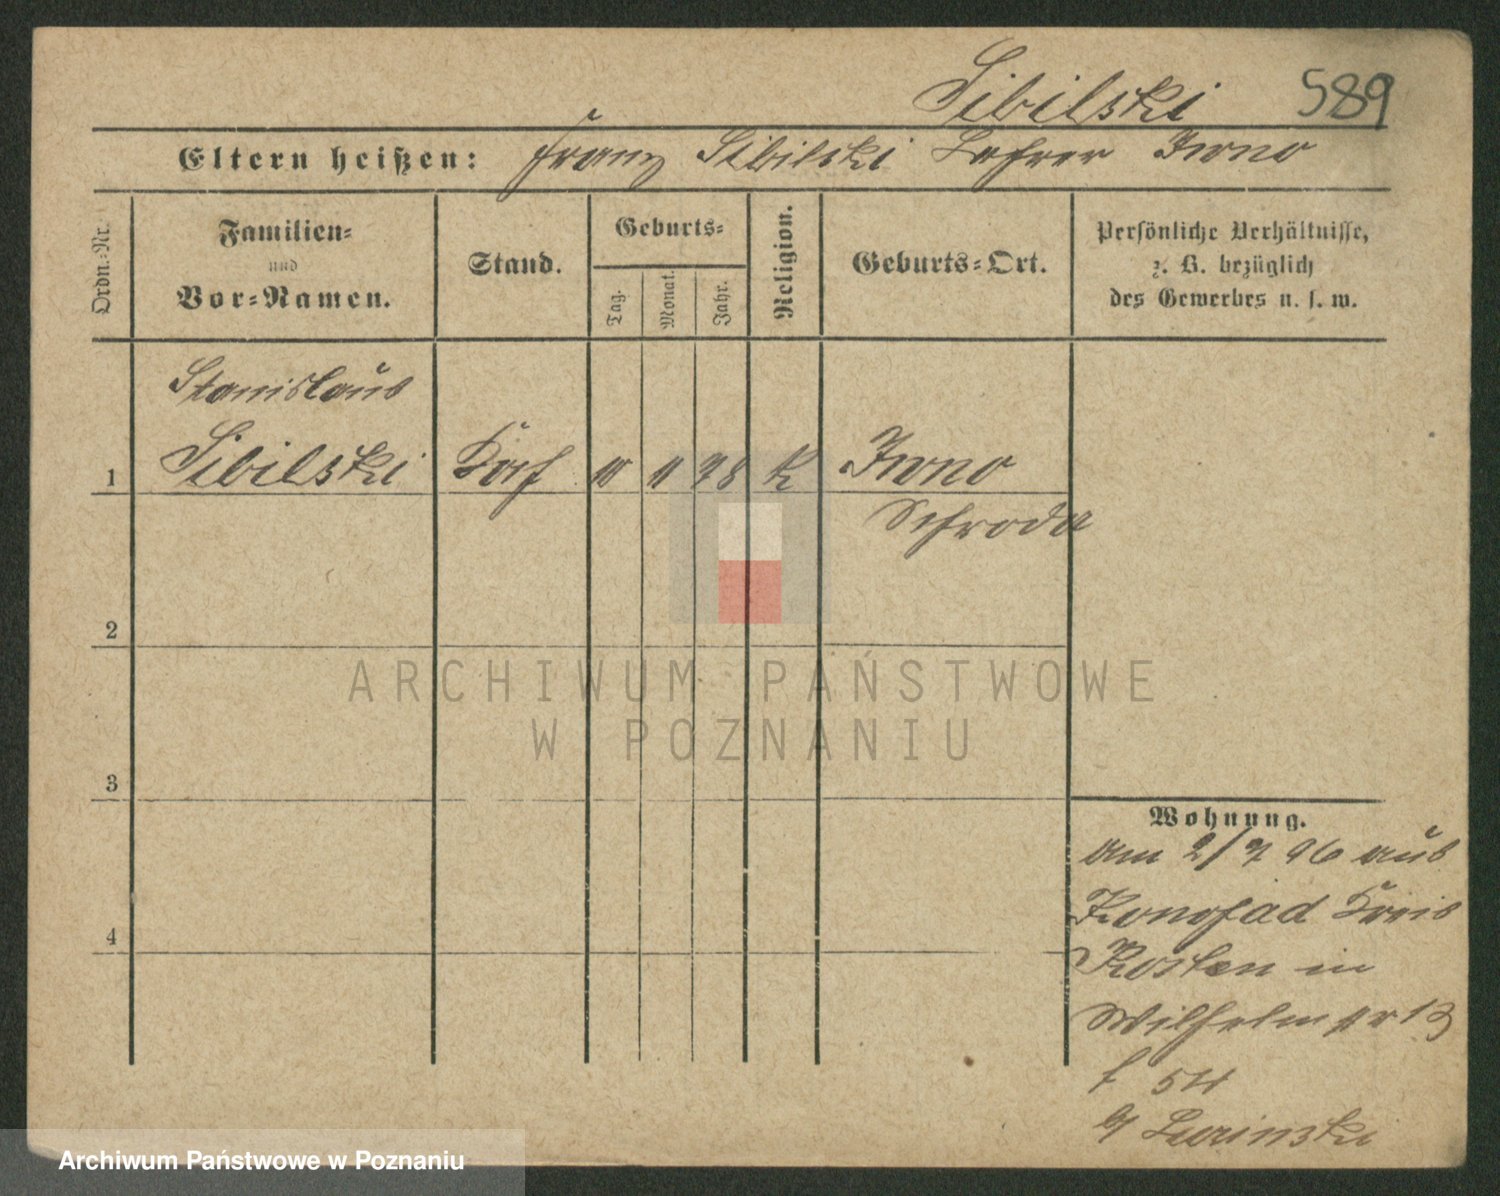 Sibilski 589
Eltern heißen: Franz Sibilski Lehrer Iwno
Ordn.-Nr.
Familien-
und
Vor-Namen.
Stand.
Geburts-
Tag.
Monat.
Jahr.
Religion.
Geburts-Ort.
Persönliche Verhältnisse,
z. B. bezüglich
des Gewerbes u. s. w.
Stanislaus
1 Sibilski 11 78 K Iwno
Schroda
2
3
4
Wohnung.
am 2/7 96 aus
Konojad Kreis
Kosten in
Wilhelm 13
f 54
ARCHIWUM PAŃSTWOWE
W POZNANIU
Archiwum Państwowe w Poznaniu